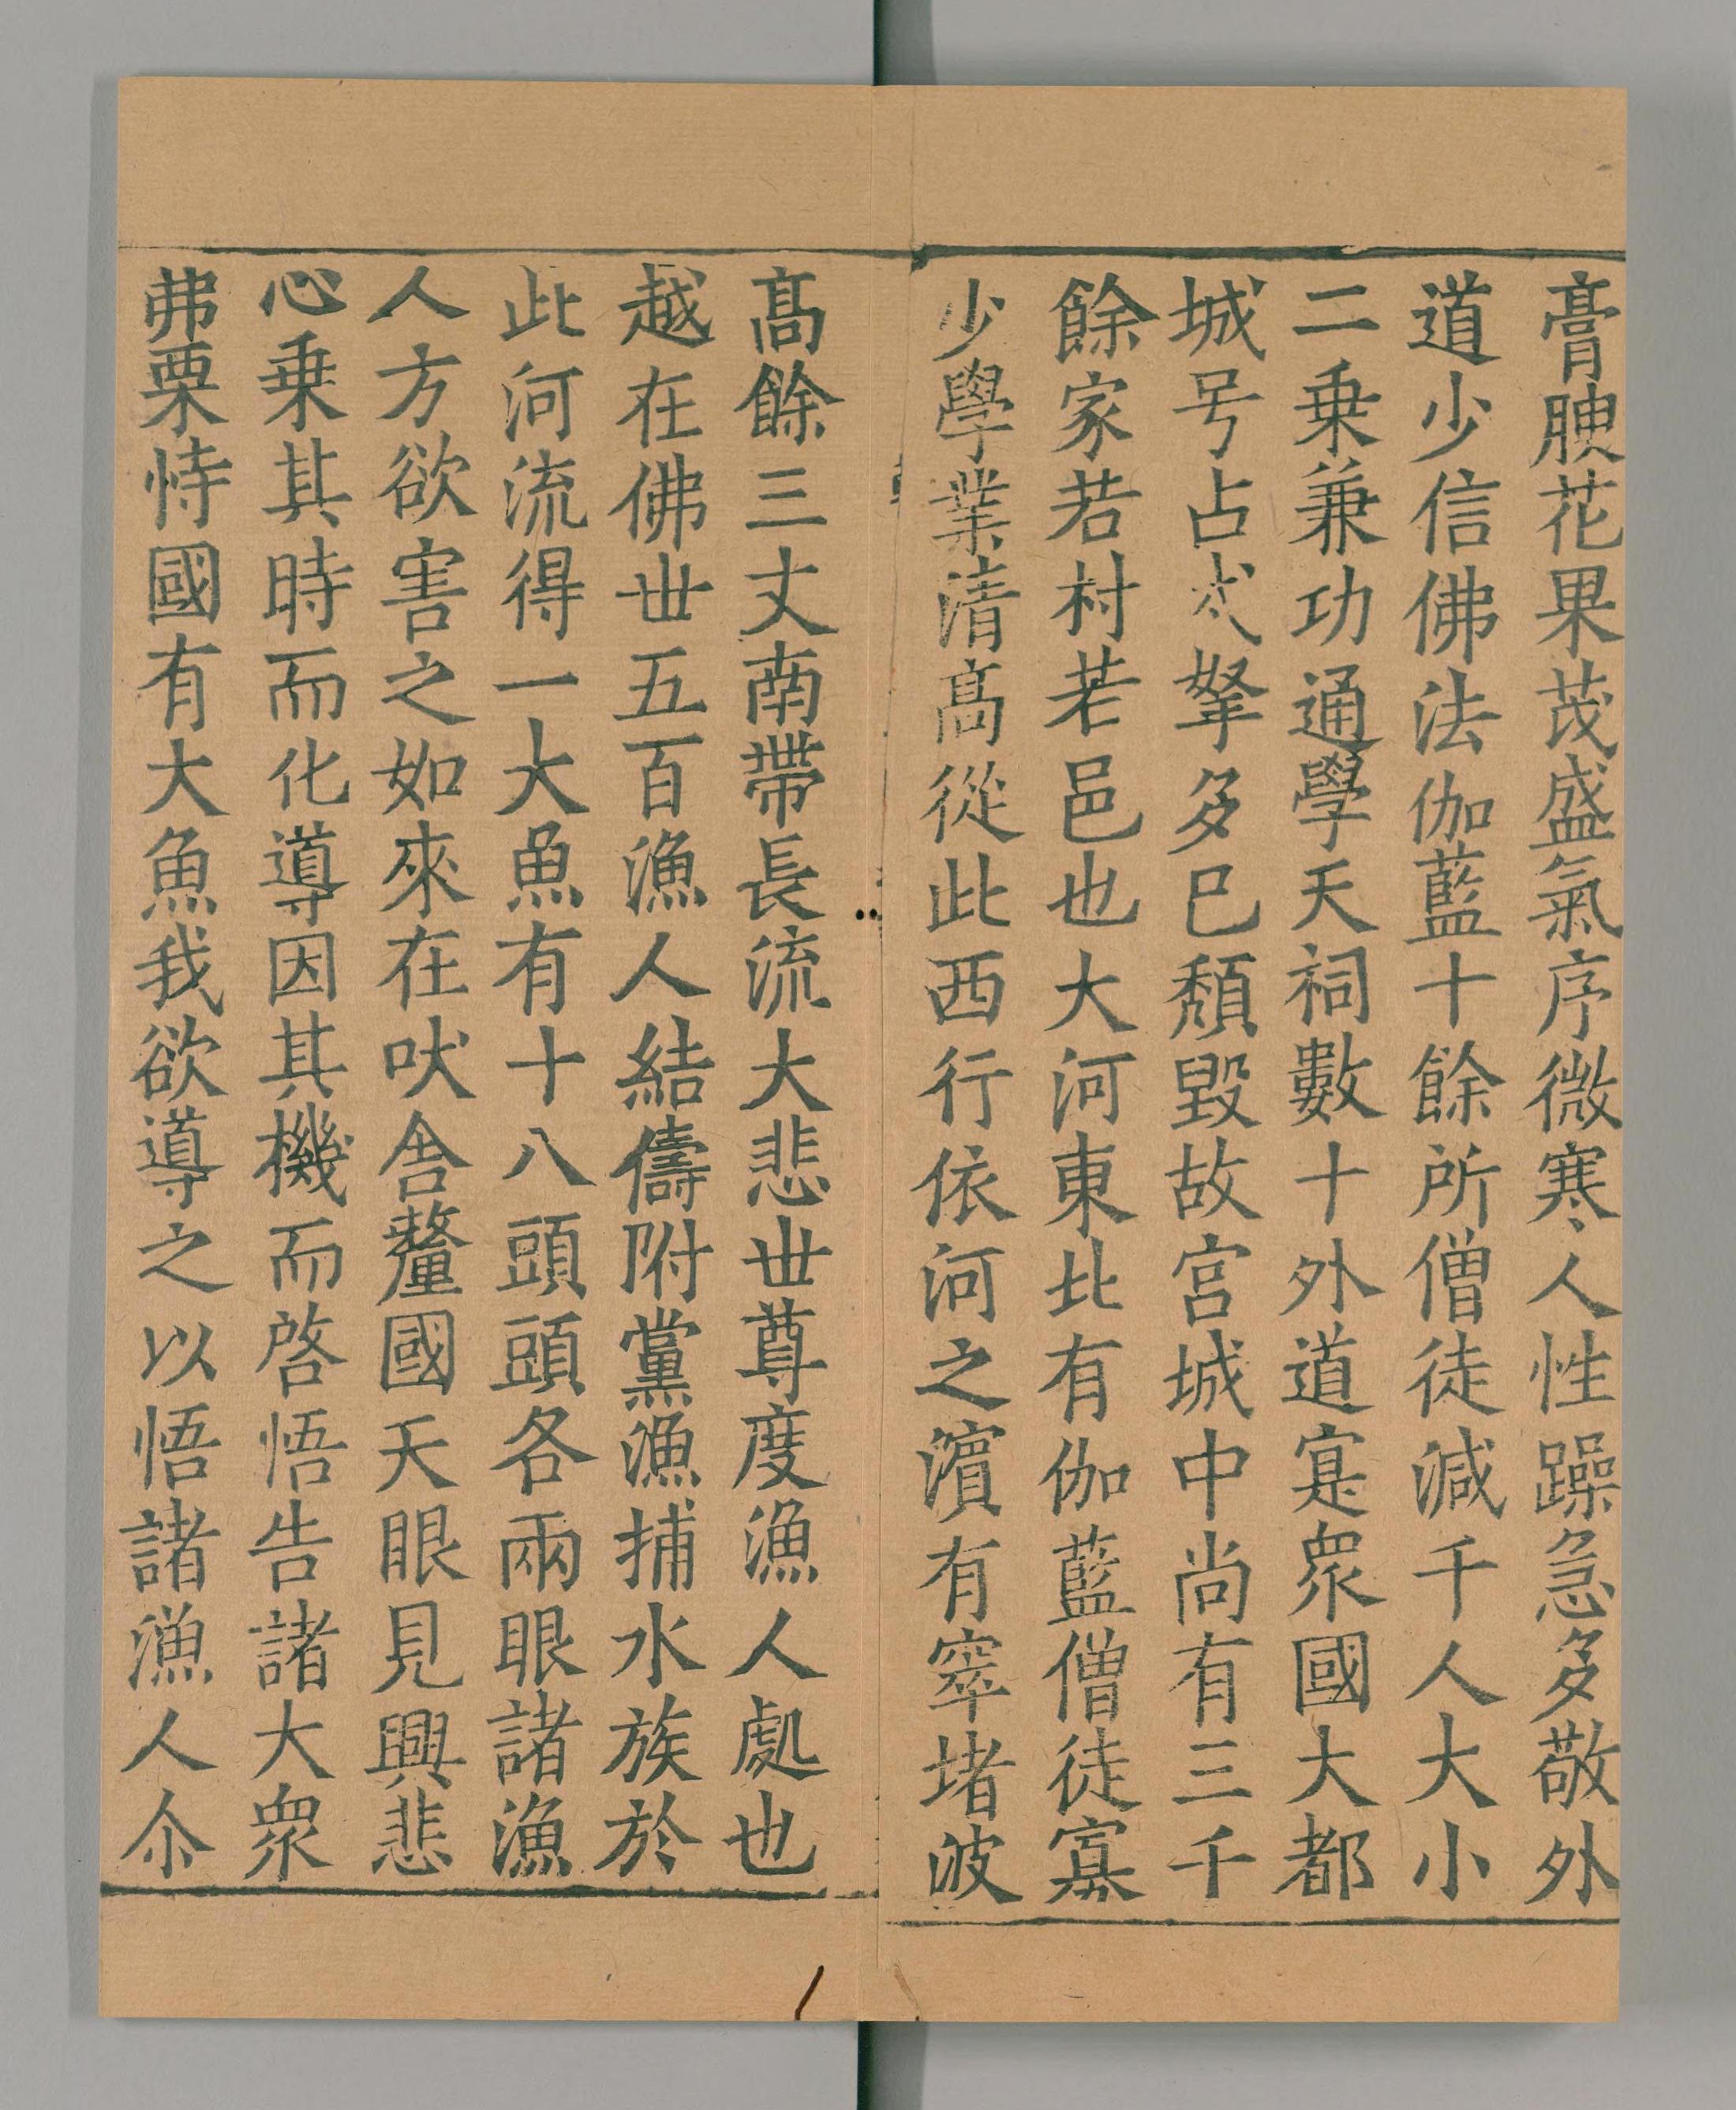 膏腴花果茂盛氣序微寒人性躁急多敬外
道少信佛法伽藍十餘所僧徒減千人大小
二乗兼功通學天祠數十外道寔衆國大都
城号占戍拏多已頽毀故宮城中尚有三千
餘家若村若邑也大河東北有伽藍僧徒寡
少學業清髙從此西行依河之濵有窣堵波
髙餘三丈南帶長流大悲世尊度漁人處也
越在佛世五百漁人結儔附黨漁捕水族於
此河流得一大魚有十八頭頭各兩眼諸漁
人方欲害之如來在吠舍釐國天眼見興悲
心乗其時而化導因其機而啓悟告諸大衆
弗栗恃國有大魚我欲導之以悟諸漁人尒